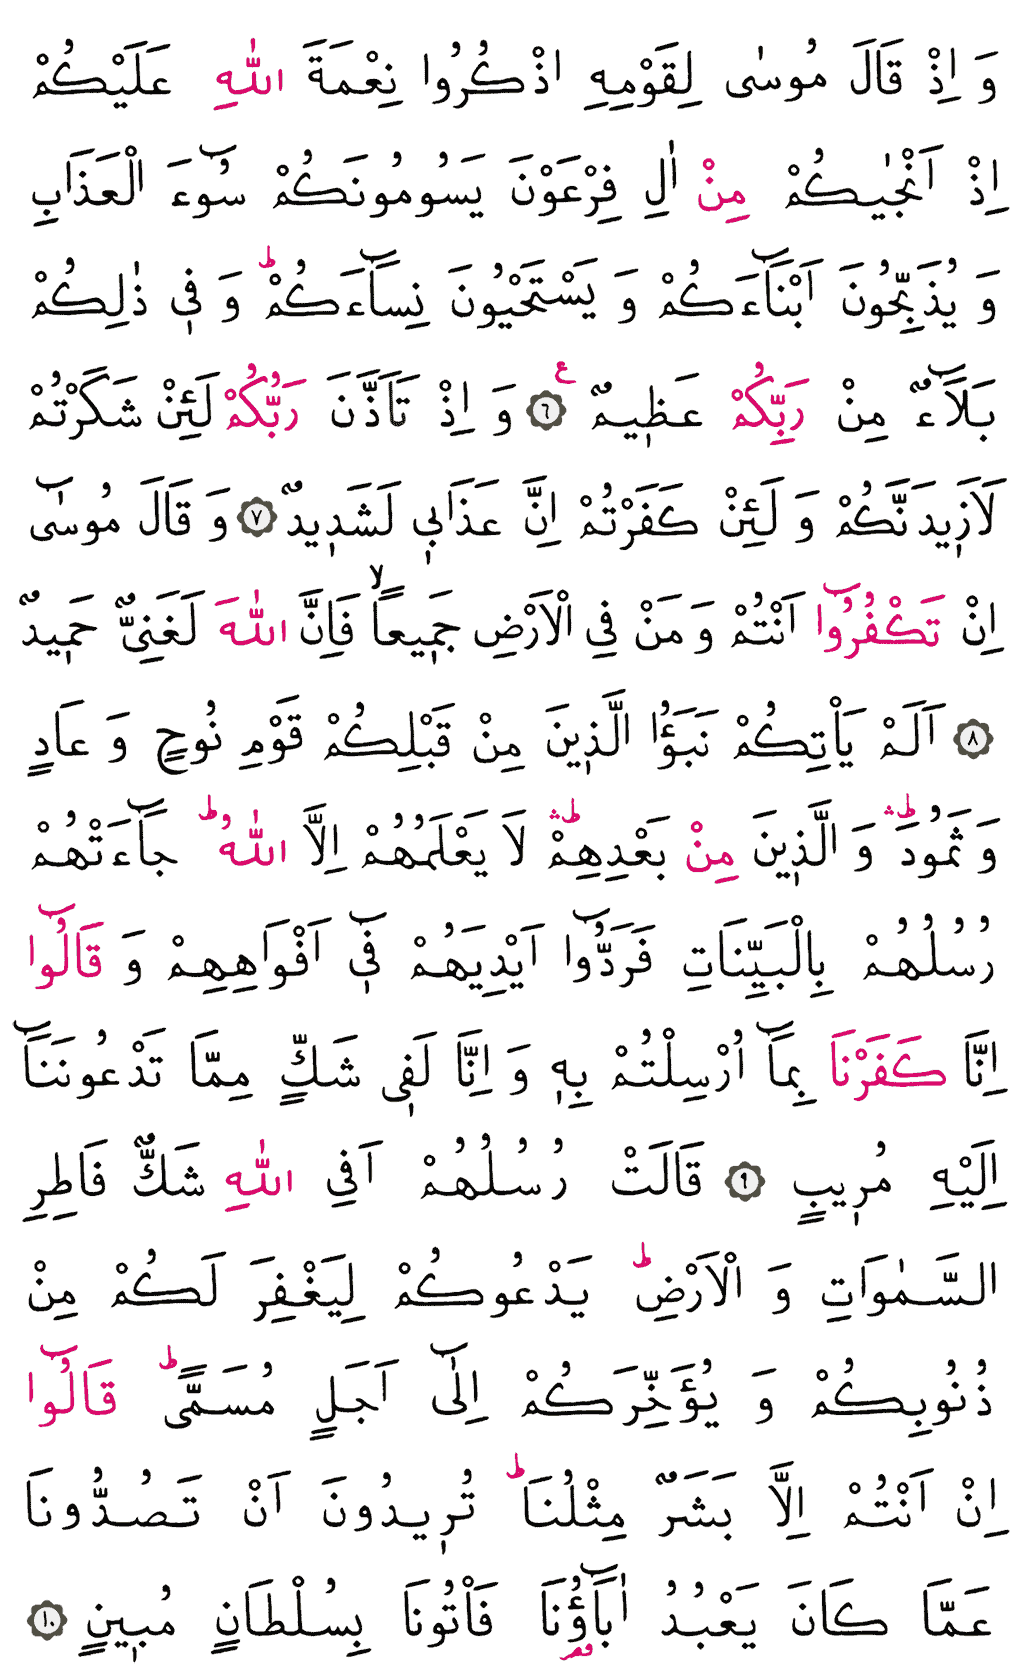 وَ اِذْ قَالَ مُوسٰى لِقَوْمِهِ اذْكُرُوا نِعْمَةَ اللّٰهِ عَلَيْكُمْ
اِذْ اَنْجٰيكُمْ مِنْ اٰلِ فِرْعَوْنَ يَسُومُونَكُمْ سُٓوءَ الْعَذَابِ
وَ يُذَبِّحُونَ اَبْنَٓاءَكُمْ وَ يَسْتَحْيُونَ نِسَٓاءَكُمْ ط وَ فٖي ذٰلِكُمْ
بَلَٓاءٌ مِنْ رَبِّكُمْ عَظٖيمٌ ع ﴿٦﴾ وَ اِذْ تَاَذَّنَ رَبُّكُمْ لَئِنْ شَكَرْتُمْ
لَاَزٖيدَنَّكُمْ وَ لَئِنْ كَفَرْتُمْ اِنَّ عَذَابٖي لَشَدٖيدٌ ﴿٧﴾ وَ قَالَ مُوسٰٓى
اِنْ تَكْفُرُٓوا اَنْتُمْ وَ مَنْ فِي الْاَرْضِ جَمٖيعًا لا فَاِنَّ اللّٰهَ لَغَنِيٌّ حَمٖيدٌ
﴿٨﴾ اَلَمْ يَاْتِكُمْ نَبَؤُا الَّذٖينَ مِنْ قَبْلِكُمْ قَوْمِ نُوحٍ وَ عَادٍ
وَ ثَمُودَ ط وَ الَّذٖينَ مِنْ بَعْدِهِمْ ط لَا يَعْلَمُهُمْ اِلَّا اللّٰهُ ط جَٓاءَتْهُمْ
رُسُلُهُمْ بِالْبَيِّنَاتِ فَرَدُّٓوا اَيْدِيَهُمْ فٖٓي اَفْوَاهِهِمْ وَ قَالُٓوا
اِنَّا كَفَرْنَا بِمَٓا اُرْسِلْتُمْ بِهٖ وَ اِنَّا لَفٖي شَكٍّ مِمَّا تَدْعُونَنَٓا
اِلَيْهِ مُرٖيبٍ ﴿٩﴾ قَالَتْ رُسُلُهُمْ اَفِي اللّٰهِ شَكٌّ فَاطِرِ
السَّمٰوَاتِ وَ الْاَرْضِ ط يَدْعُوكُمْ لِيَغْفِرَ لَكُمْ مِنْ
ذُنُوبِكُمْ وَ يُؤَخِّرَكُمْ اِلٰٓى اَجَلٍ مُسَمًّى ط قَالُٓوا
اِنْ اَنْتُمْ اِلَّا بَشَرٌ مِثْلُنَا ط تُرٖيدُونَ اَنْ تَصُدُّونَا
عَمَّا كَانَ يَعْبُدُ اٰبَٓاؤُنَا فَاْتُونَا بِسُلْطَانٍ مُبٖينٍ ﴿١٠﴾